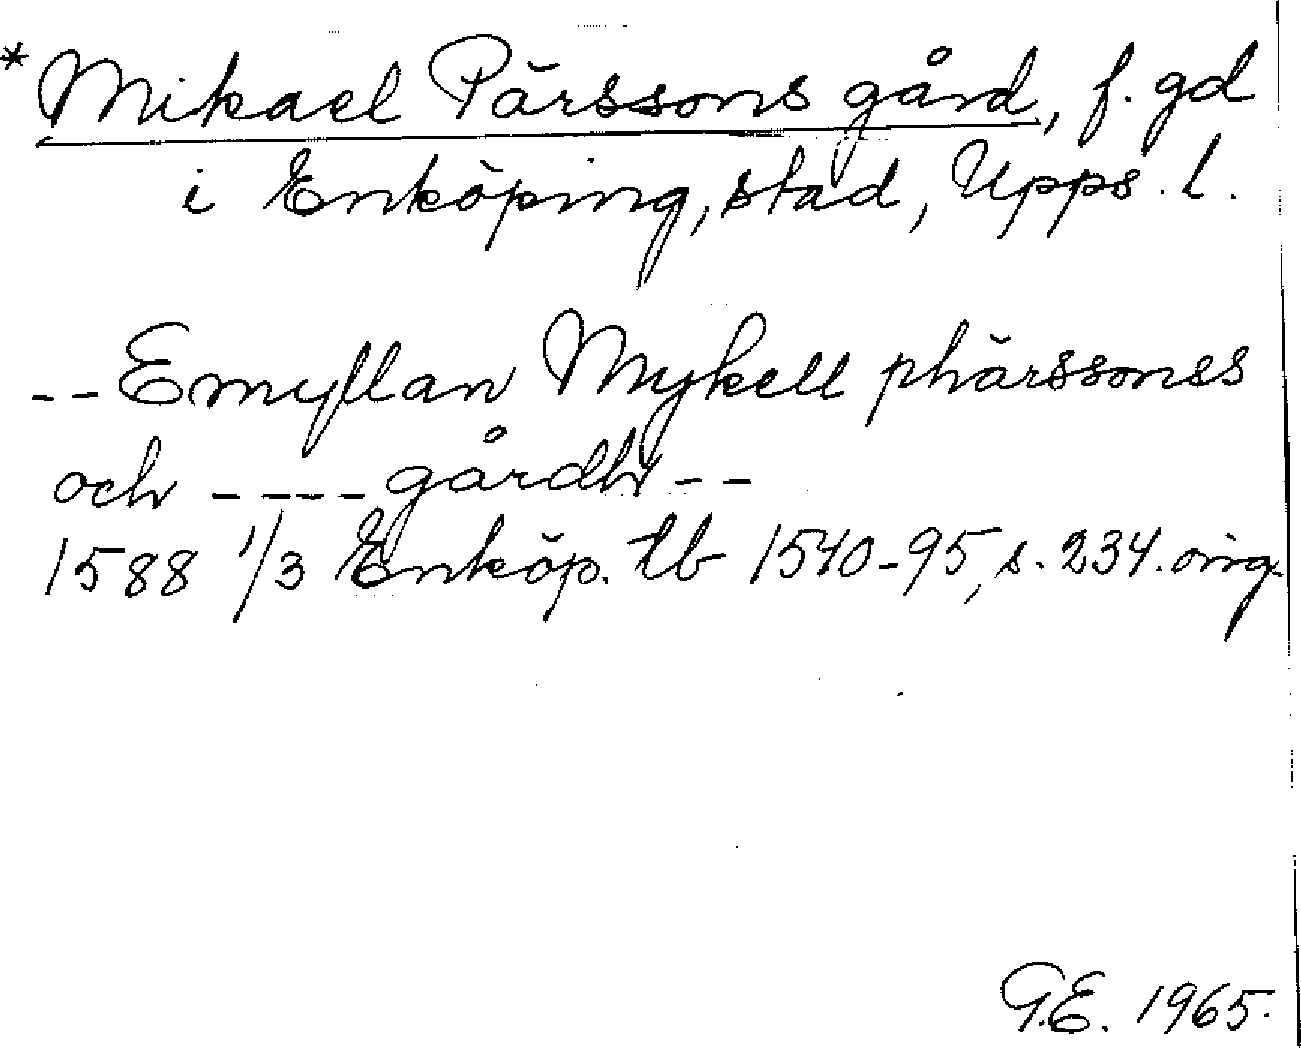 * Mikael Pärssons gård, f. gd
i Enköping, stad, Upps. l.
-- Emyllan Mykell phärssonss
och ---- gårdh --
1588 1/3 Enköp. tb 1540-95, s. 234. orig.
G.E. 1965.